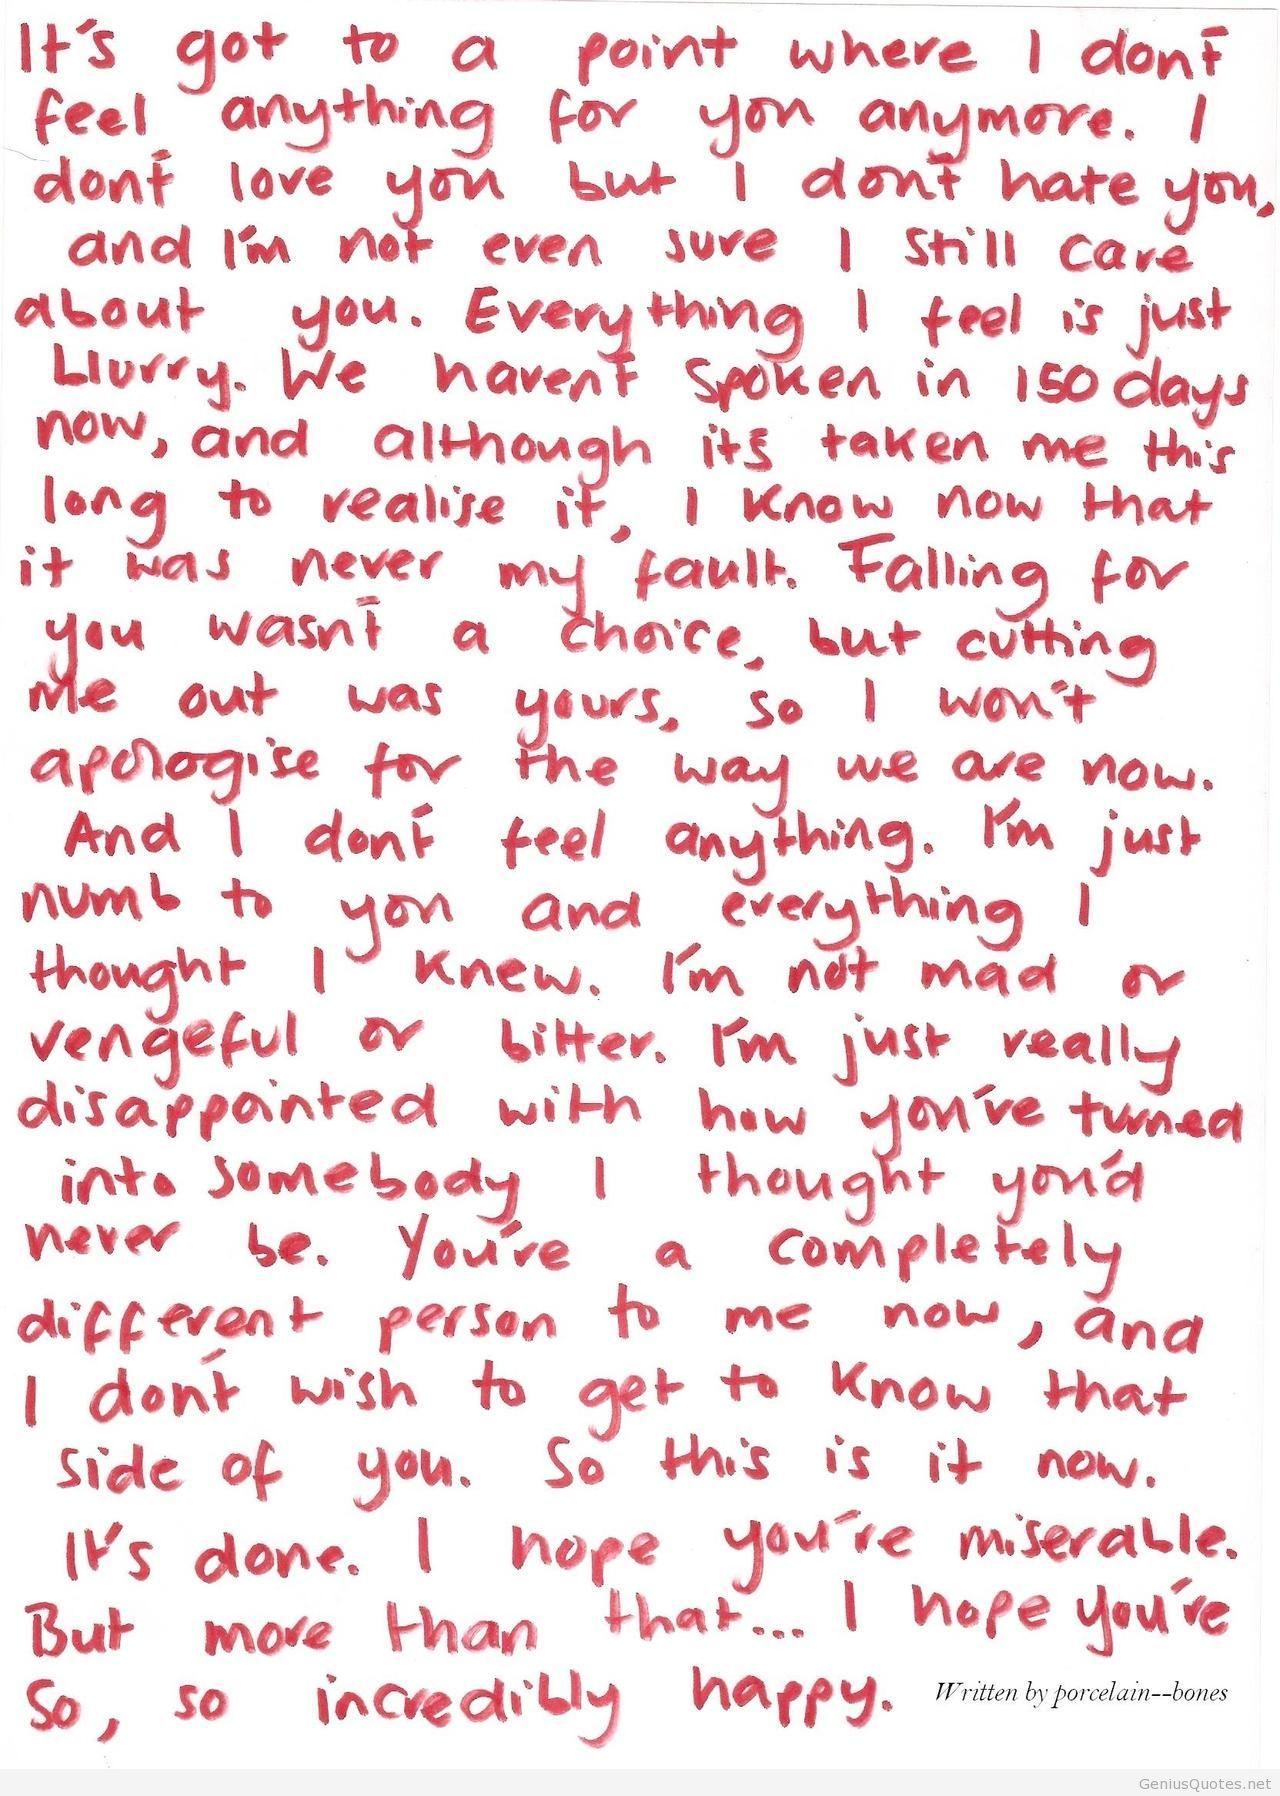 It's got to a point where I don't
feel anything for you anymore. I
don't love you but I don't hate you,
and I'm not even sure I still care
about you. Everything I feel is just
blurry. We haven't spoken in 150 days
now, and although it's taken me this
long to realise it, I know now that
it was never my fault. Falling for
you wasn't a choice, but cutting
me out was yours, so I won't
apologise for the way we are now.
And I don't feel anything. I'm just
numb to you and everything I
thought I knew. I'm not mad or
vengeful or bitter. I'm just really
disappointed with how you've turned
into somebody I thought you'd
never be. You're a completely
different person to me now, and
I don't wish to get to know that
side of you. So this is it now.
It's done. I hope you're miserable.
But more than that... I hope you're
So, so incredibly happy. Written by porcelain--bones
GeniusQuotes.net